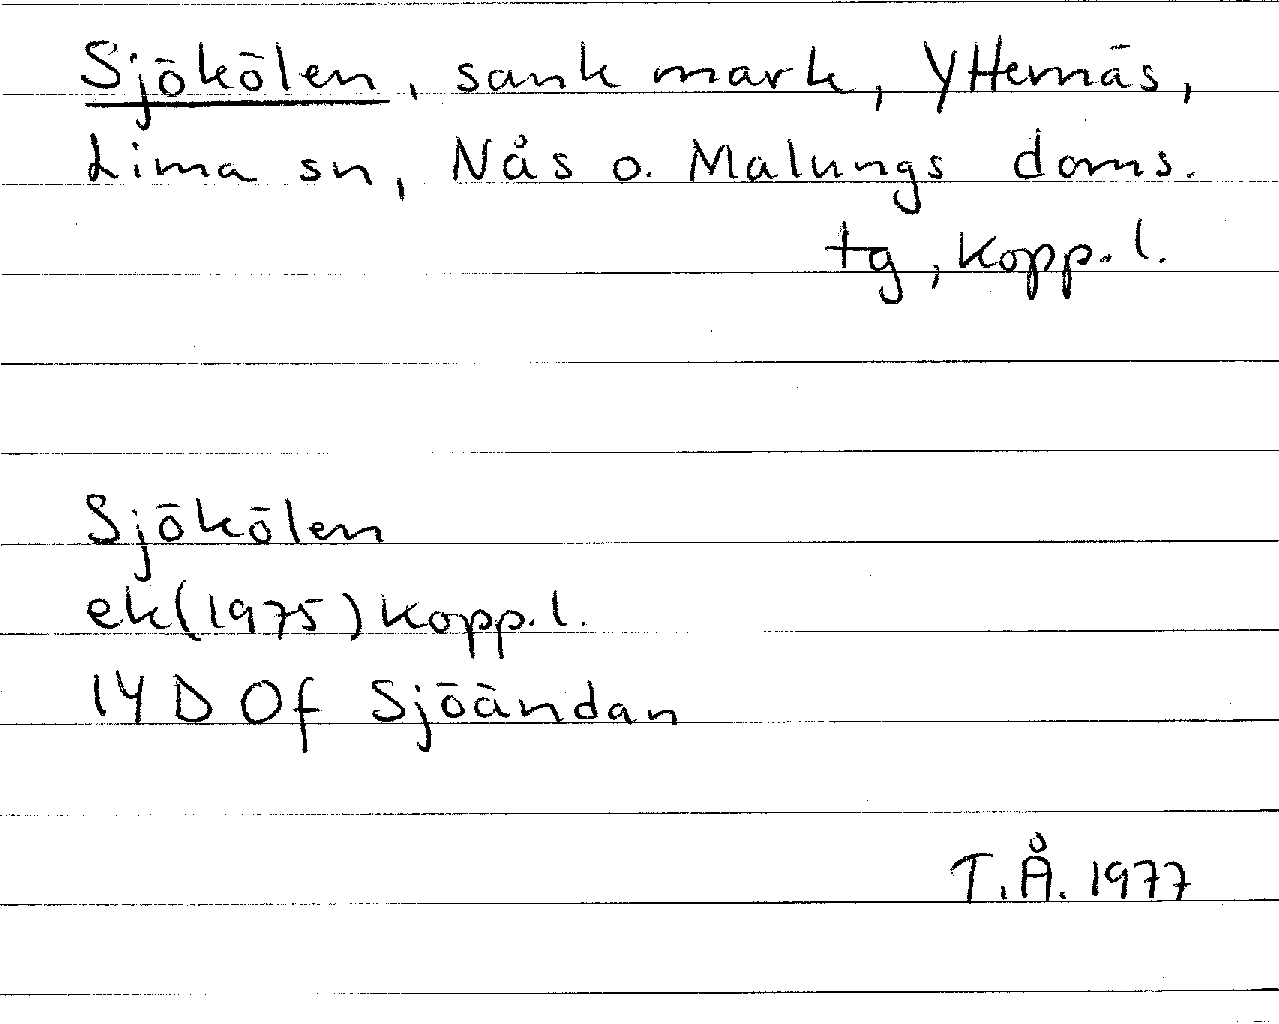 Sjökölen, sank mark, Ytternäs,
Lima sn, Nås o. Malungs doms.
tg, Kopp. l.
Sjökölen
ek(1975) Kopp. l.
14 D 0f Sjöändan
T.Å. 1977